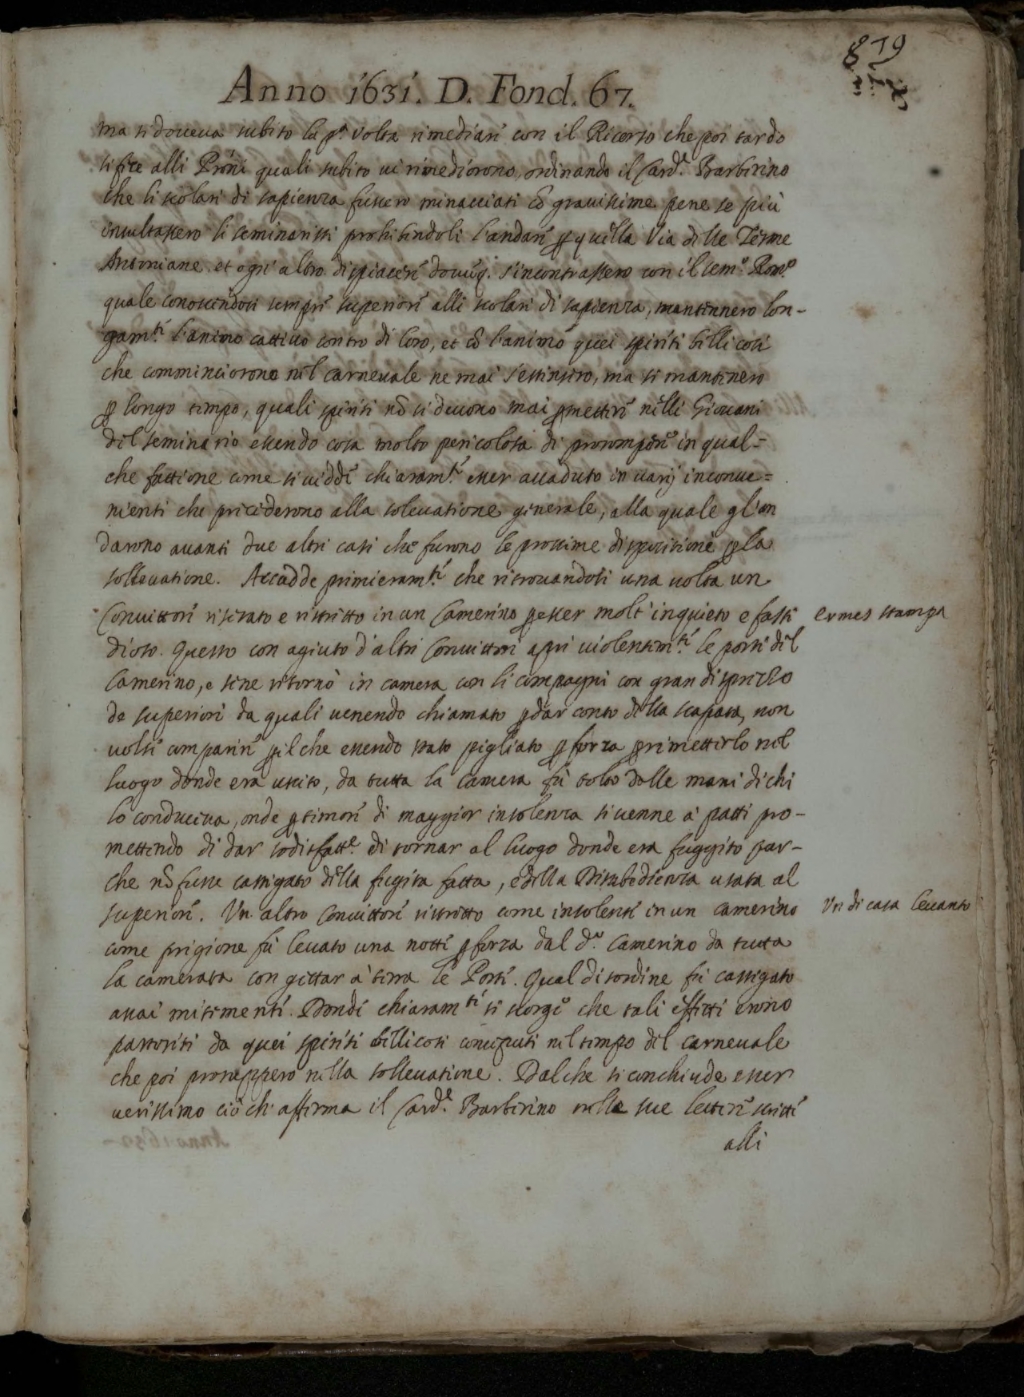 879
Anno 1631. D. Fond. 67.
ma si doueua subito la p.ª Volta rimediari con il Ricorso che poi tardo
si fece alli Prôni quali subito ui rimediorono, ordinando il Card.e Barberino
che li scolari di sapienza fussero minacciati cō grauissime pene se più
insultassero li seminaristi prohibendoli l'andare p quella Via delle Terme
Antoniane et ogni altro dispiacere douūq. s'incontrassero con il sem.o Rom.o
quale conoscendosi sempre superiore alli scolari di sapienza, mantennero lon-
gam.ti l'animo cattiuo contro di loro, et cō l'animo quei spiriti bellicosi
che comminciorono nel carneuale ne mai s'estinsero, ma si mantenero
p longo tempo, quali spiriti nō si deuono mai pmettere nelli Giouani
del seminario essendo cosa molto pericolosa di prorompere in qual=
che fattione come si uidde chiaram.te esser accaduto in varij inconue=
nienti che precederono alla soleuatione generale, alla quale gl'an
darono auanti due altri casi che furono le prossime dispositioni p la
solleuatione. Accadde primieram.te che ritrouandosi una uolta un
Conuittore ritirato e ristretto in un Camerino p esser molt'inquieto e fasti
dioso. Questo con agiuto d'altri Conuittori aprì uiolentem.te le porte del
Camerino, e sene ritornò in camera con li compagni con gran disprezzo
de superiori da quali uenendo chiamato p dar conto della scapata, non
uolse comparire pil che essendo stato pigliato p forza p rimetterlo nel
luogo donde era uscito, da tutta la camera fù tolto dalle mani di chi
lo conduceua, onde p timore di maggior insolenza si uenne à patti pro-
mettendo di dar sodisfatt.e di tornar al luogo donde era fuggito par-
che nō fusse castigato della fugita fatta, e della Disubedienza usata al
superiore. Vn altro Conuittore ristretto come insolente in un camerino
come prigione fù leuato una notte p forza dal d.o Camerino da tutta
la camerata con gittar à terra le Porte. Qual disordine fù castigato
assai mitemente. Donde chiaram.te si scorge che tali effetti erono
partoriti da quei spiriti bellicosi concepiti nel tempo del carneuale
che poi proruppero nella solleuatione. Dal che si conchiude esser
uerissimo ciò ch'affirma il Card.e Barberino nelle sue lettere scritte
alli
Ermes stampa
Vn di casa leuanto